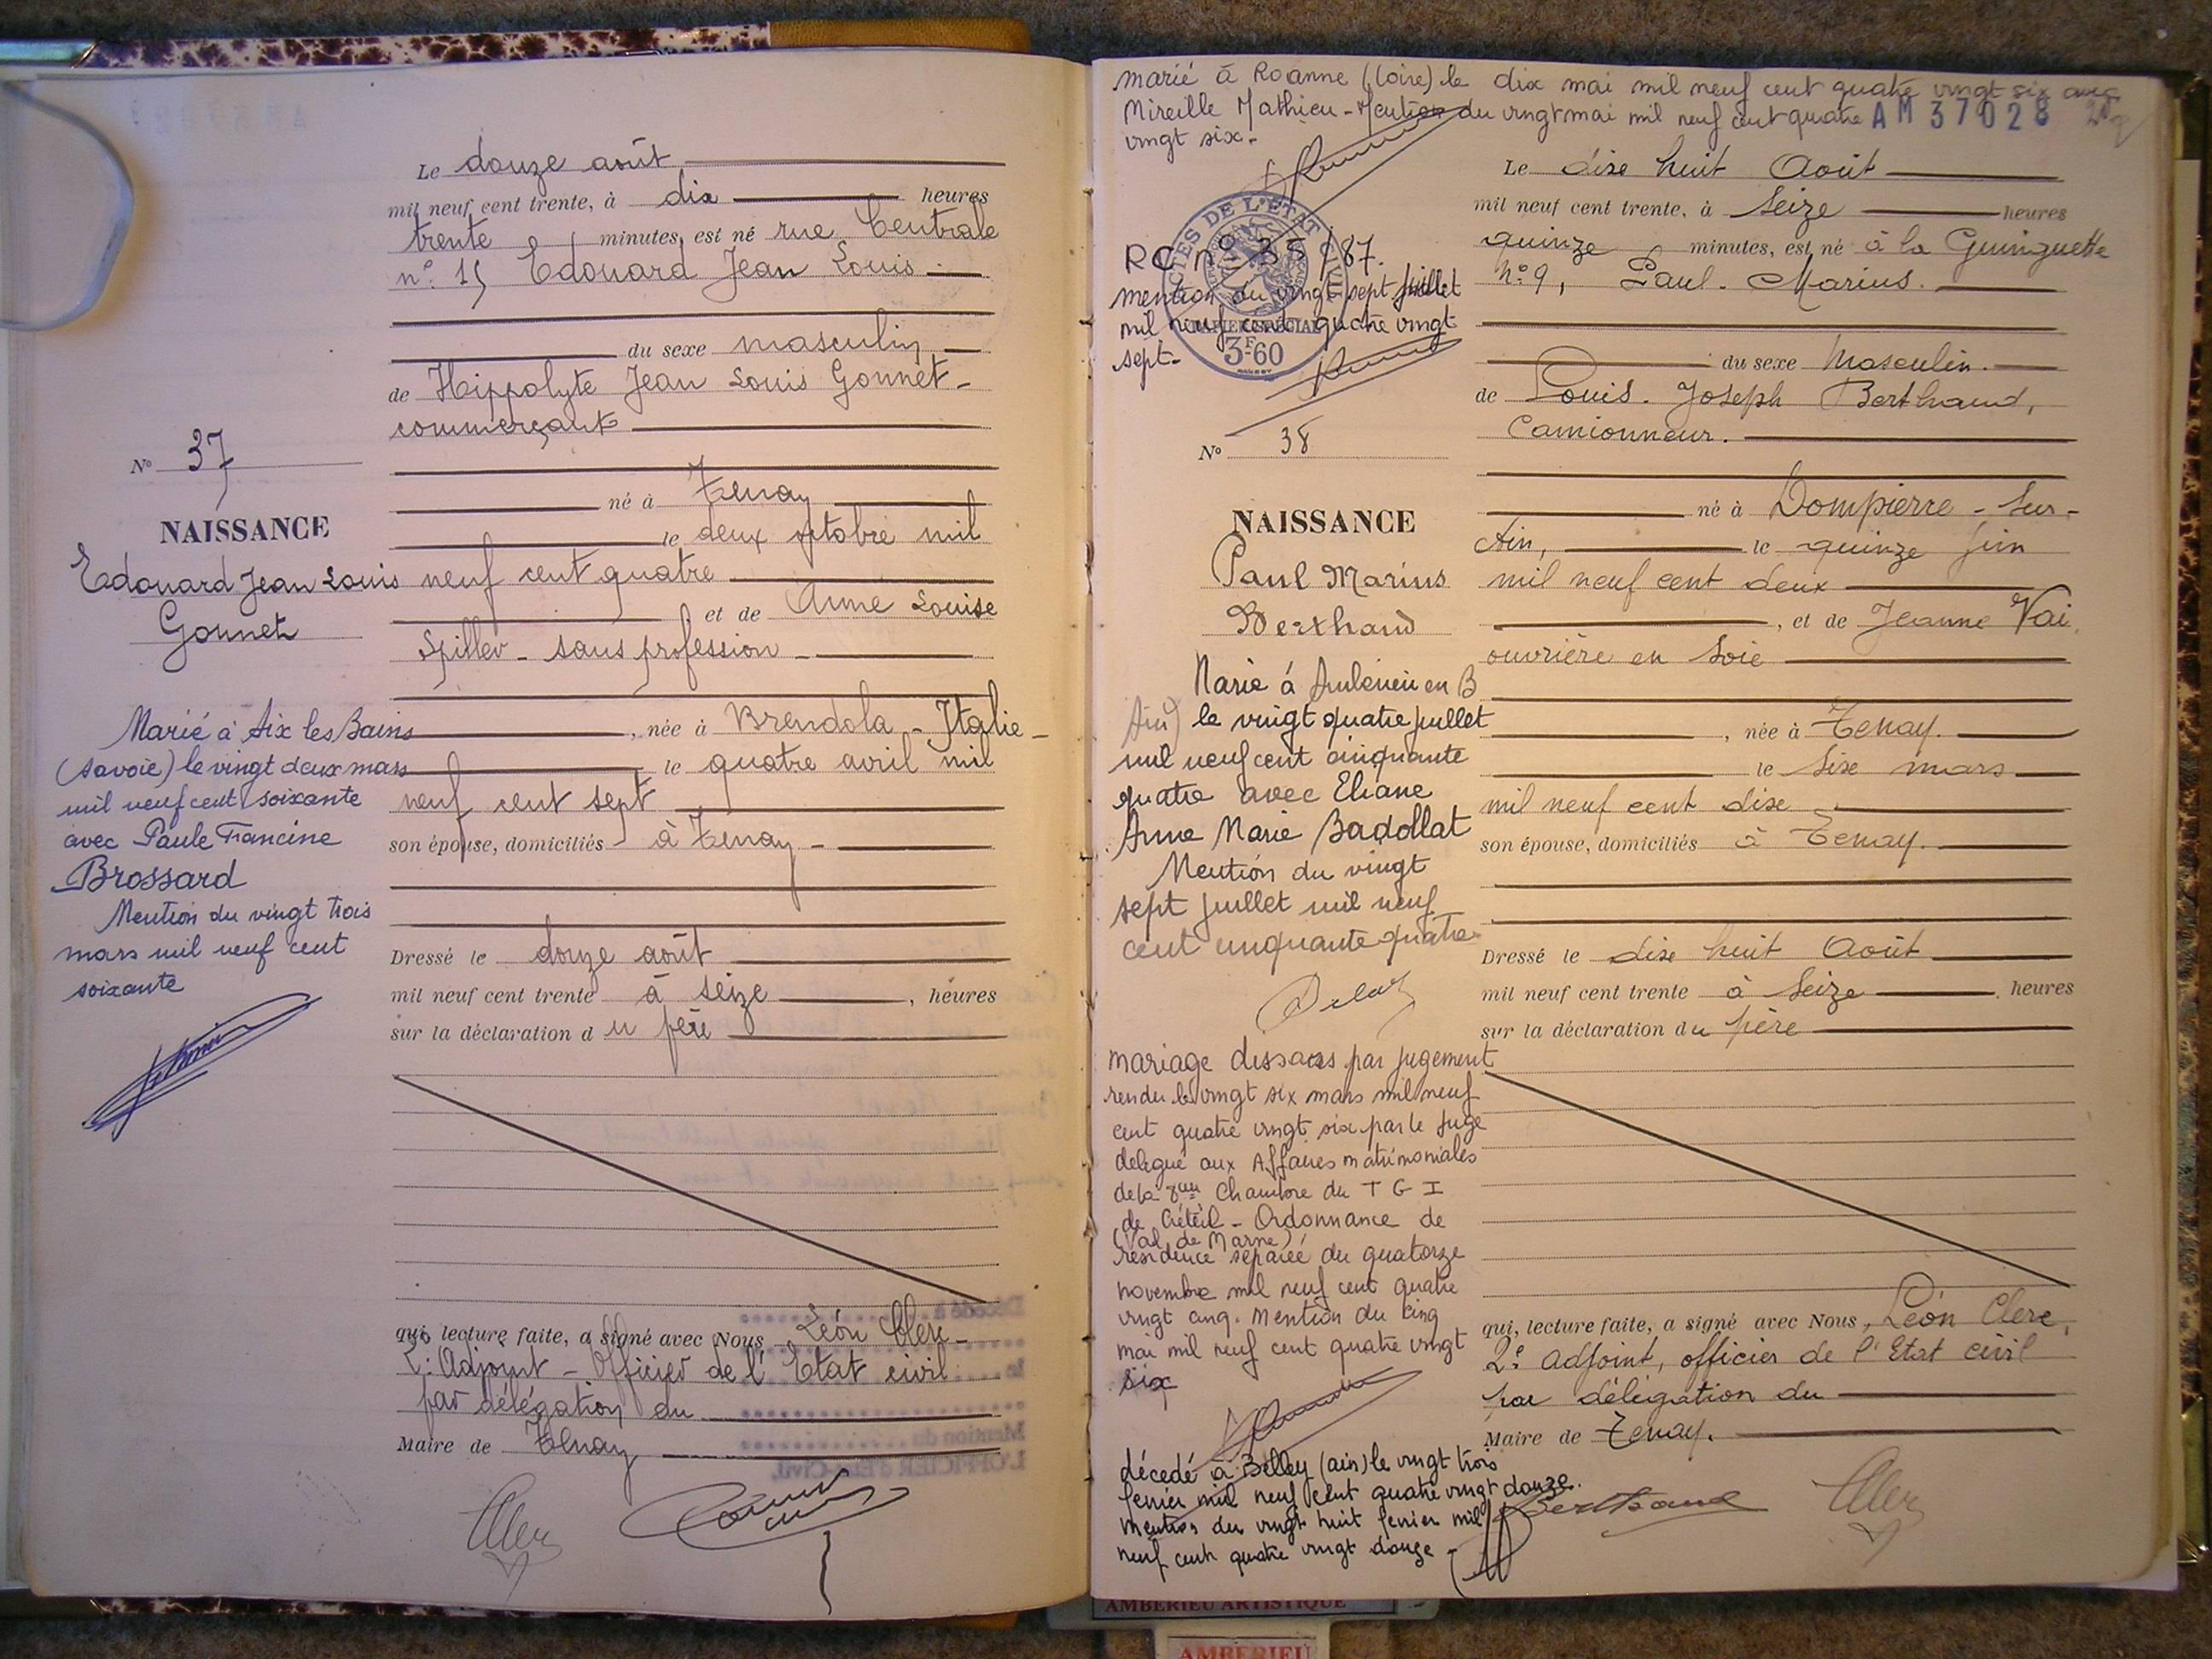 Le douze août
mil neuf cent trente, à dix heures
trente minutes, est né rue Centrale
n° 15 Edouard Jean Louis
du sexe masculin
de Hippolyte Jean Louis Gonnet -
commerçant
né à Tenay
le deux octobre mil
neuf cent quatre
, et de Anne Louise
Spiller - sans profession -
, née à Brendola - Italie -
le quatre avril mil
neuf cent sept
son épouse, domiciliés à Tenay -
Dressé le douze août
mil neuf cent trente à seize , heures
sur la déclaration du père
qui, lecture faite, a signé avec Nous Léon Clerc -
2e Adjoint - Officier de l'Etat civil
par délégation du
Maire de Tenay
N° 37
NAISSANCE
Edouard Jean Louis
Gonnet
Marié à Aix les Bains
(Savoie) le vingt deux mars
mil neuf cent soixante
avec Paule Francine
Brossard
Mention du vingt trois
mars mil neuf cent
soixante
marié à Roanne (Loire) le dix mai mil neuf cent quatre vingt six avec
Mireille Mathieu - Mention du vingt mai mil neuf cent quatre AM 37028
vingt six -
ACTES DE L'ETAT CIVIL
PAPIER SPECIAL
3F60
RC n° 35/87.
mention du vingt sept juillet
mil neuf cent quatre vingt
sept -
N° 38
NAISSANCE
Paul Marius
Berthaud
Marié à Ambérieu en B
(Ain) le vingt quatre juillet
mil neuf cent cinquante
quatre avec Eliane
Anne Marie Badollat
Mention du vingt
sept juillet mil neuf
cent cinquante quatre
mariage dissous par jugement
rendu le vingt six mars mil neuf
cent quatre vingt six par le Juge
délégué aux Affaires matrimoniales
de la 8ème Chambre du T G I
de Créteil - Ordonnance de
(Val de Marne)
résidence séparée du quatorze
novembre mil neuf cent quatre
vingt cinq. Mention du cinq
mai mil neuf cent quatre vingt
six
décédé à Belley (ain) le vingt trois
fevrier mil neuf cent quatre vingt douze.
mention du vingt huit fevrier mil
neuf cent quatre vingt douze -
Le dixe huit Août
mil neuf cent trente, à Seize heures
quinze minutes, est né à la Guinguette
N° 9, Paul - Marius.
du sexe Masculin.
de Louis - Joseph Berthaud,
Camionneur.
né à Dompierre - Sur -
Ain, le quinze Juin
mil neuf cent deux
, et de Jeanne Vai
ouvrière en Soie
, née à Tenay.
le Six mars
mil neuf cent dixe
son épouse, domiciliés à Tenay.
Dressé le dixe huit Août
mil neuf cent trente à Seize , heures
sur la déclaration du père
qui, lecture faite, a signé avec Nous, Léon Clerc,
2e adjoint, officier de l'Etat civil
par délégation du
Maire de Tenay.
Berthaud
AMBERIEU ARTISTIQUE
AMBERIEU